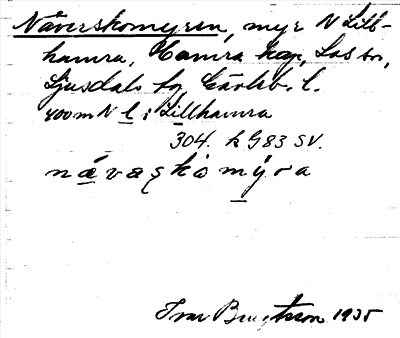 Näverskomyren, myr N Lill-
hamra, Hamra kap, Los sn,
Ljusdals tg, Gävleb. l.
400 m N l i Lillhamra
304. k G83 SV.
nävaskomyra
Ivar 1935